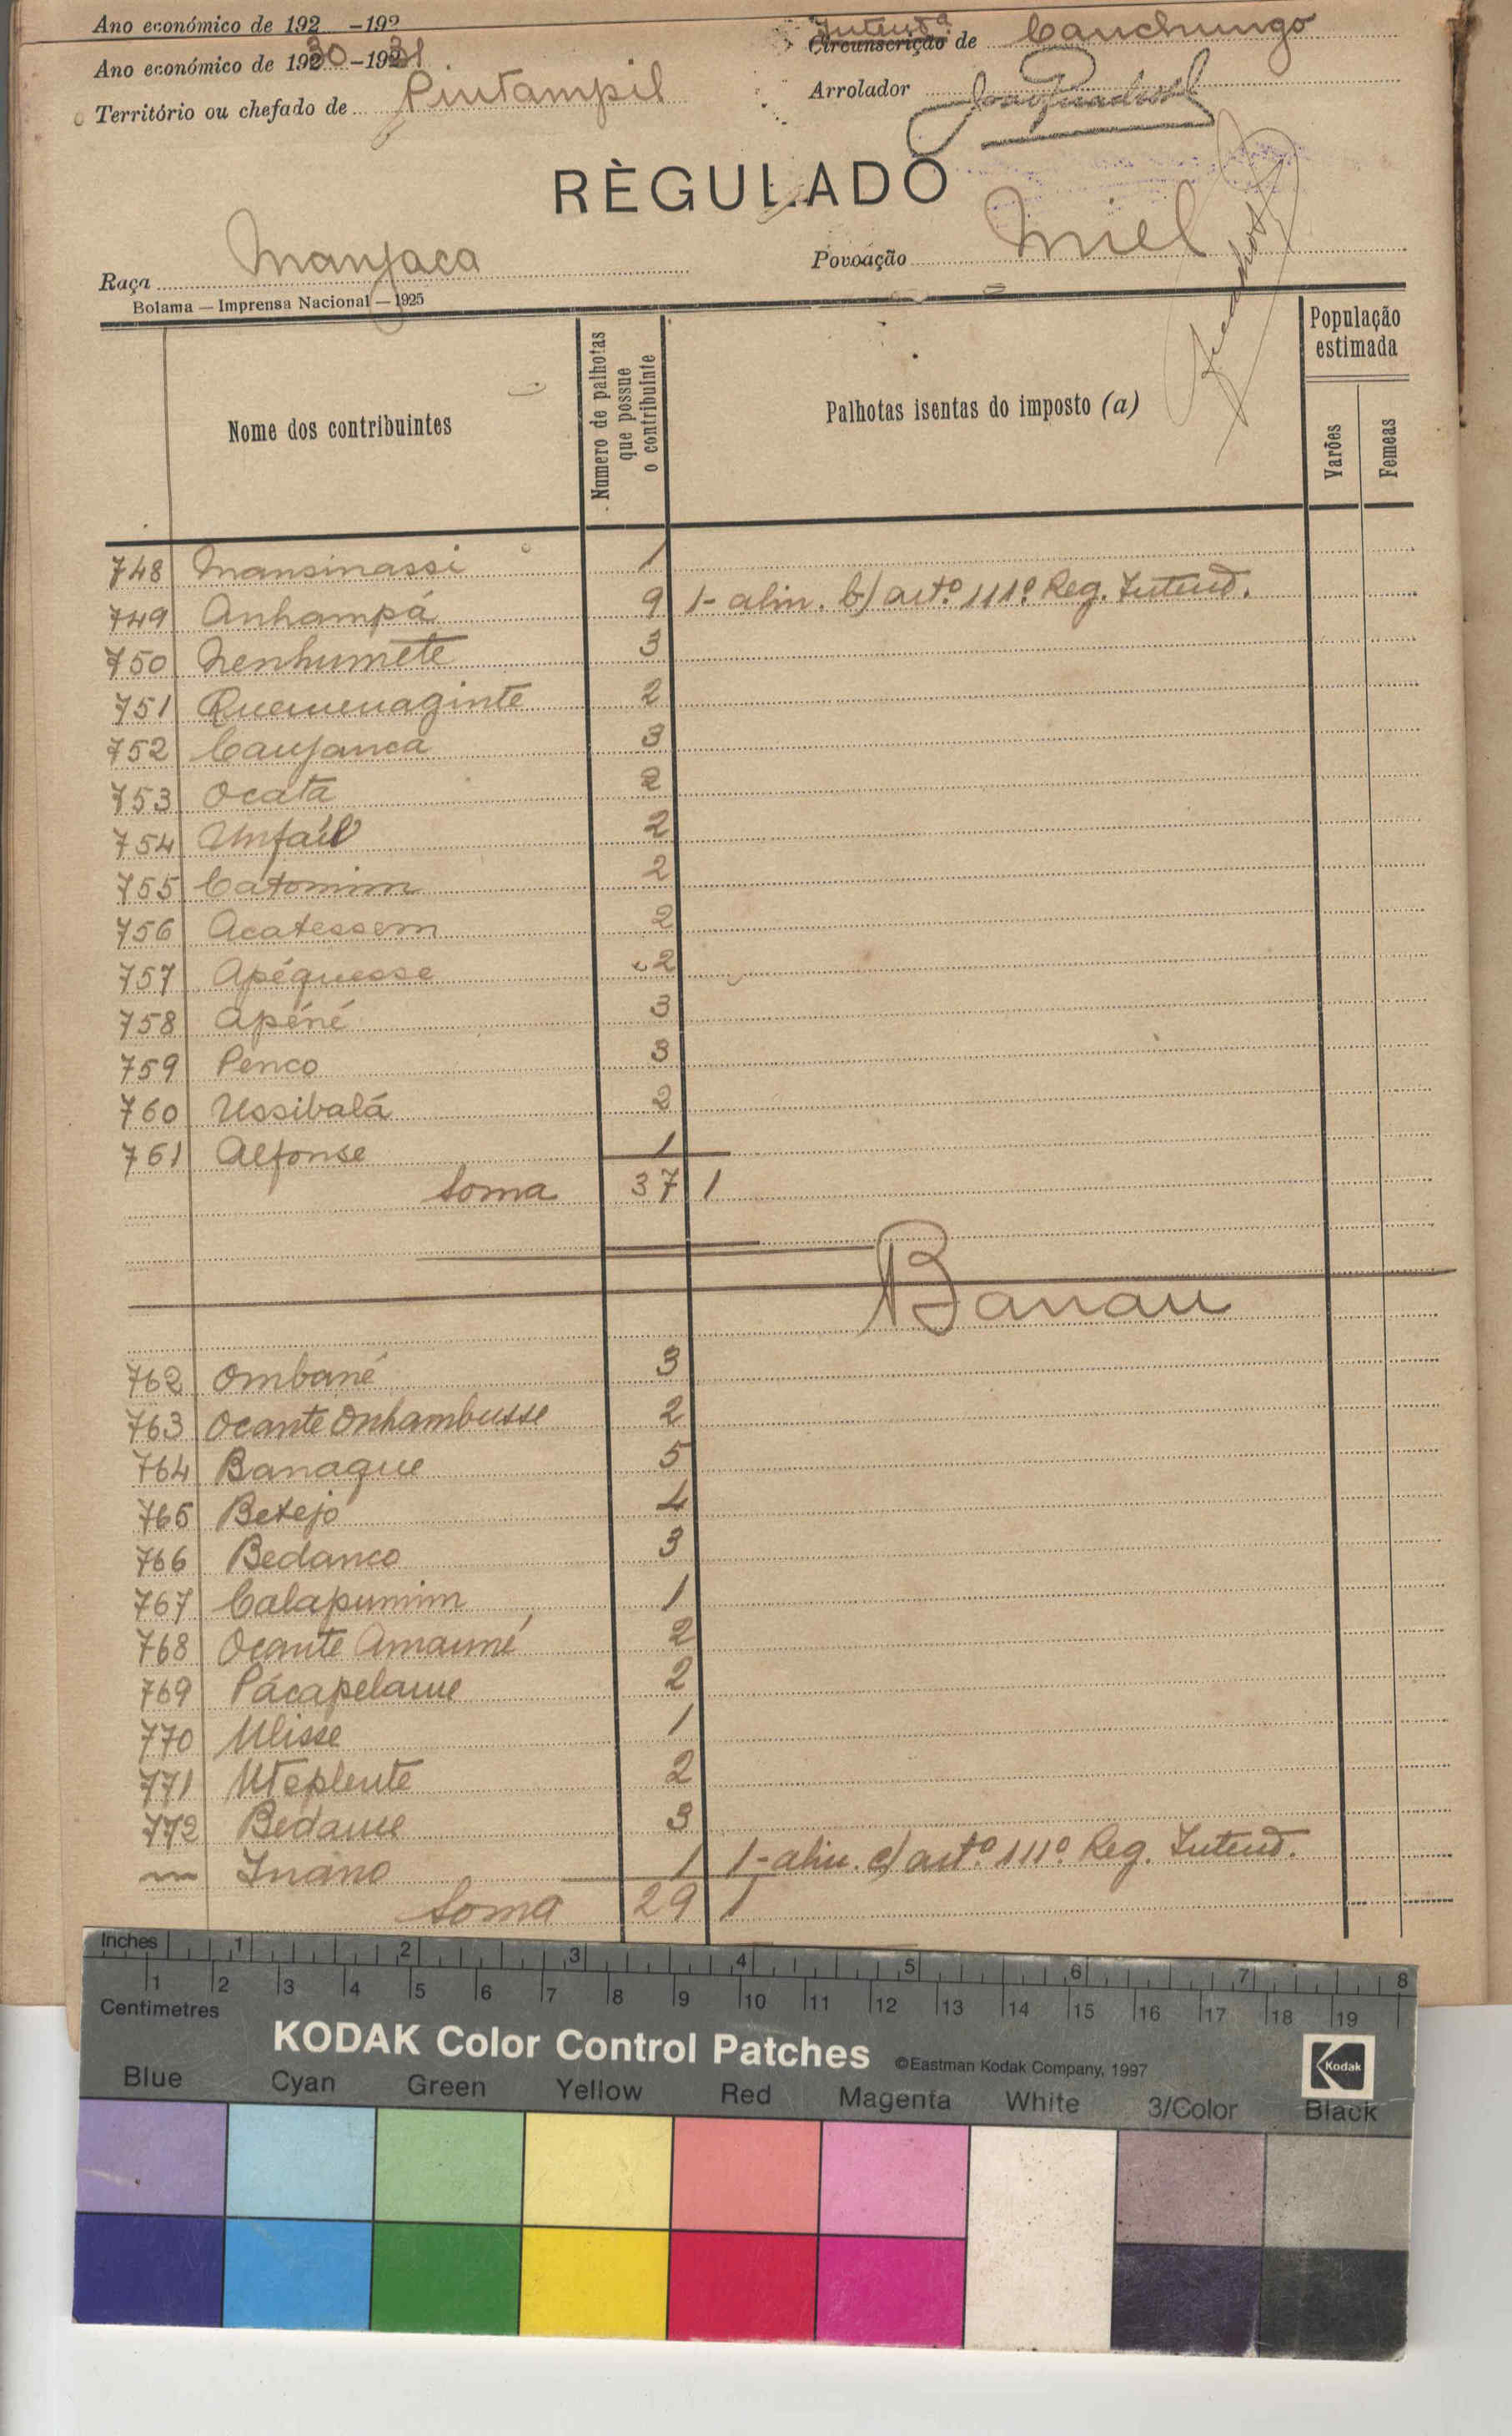 Ano económico de 192 -192
Ano económico de 1930-1931
Intend.ª
Circunscrição de Canchungo
Território ou chefado de Pintampil
Arrolador
RÈGULADO
Raça Manjaca
Povoação Miel
Bolama — Imprensa Nacional — 1925
Nome dos contribuintes
Numero de palhotas que possue o contribuinte
Palhotas isentas do imposto (a)
População estimada
Varões
Femeas
748 Mansinassi 1
749 Anhampá 9 1- alin. b) artº 111º Reg. Intend.
750 Nenhumete 3
751 2
752 Caujanca 3
753 Ocata 2
754 Unfaíl 2
755 Catomim 2
756 Acatessem 2
757 Apéquesse 2
758 Apéné 3
759 Penco 3
760 Ussibalá 2
761 Alfonse 1
Soma 37 1
Banau
762 Ombané 3
763 Ocante Onhambusse 2
764 Banaque 5
765 Betejó 4
766 Bedanco 3
767 Calapumim 1
768 Ocante Amauné 2
769 Pácapelaue 2
770 Ulisse 1
771 Uteplente 2
772 Bedaue 3
Inano 1 1- alin. c) artº 111º Reg. Intend.
Soma 29 1
Inches 1 2 3 4 5 6 7 8
1 2 3 4 5 6 7 8 9 10 11 12 13 14 15 16 17 18 19
Centimetres
KODAK Color Control Patches ©Eastman Kodak Company, 1997 Kodak
Blue Cyan Green Yellow Red Magenta White 3/Color Black